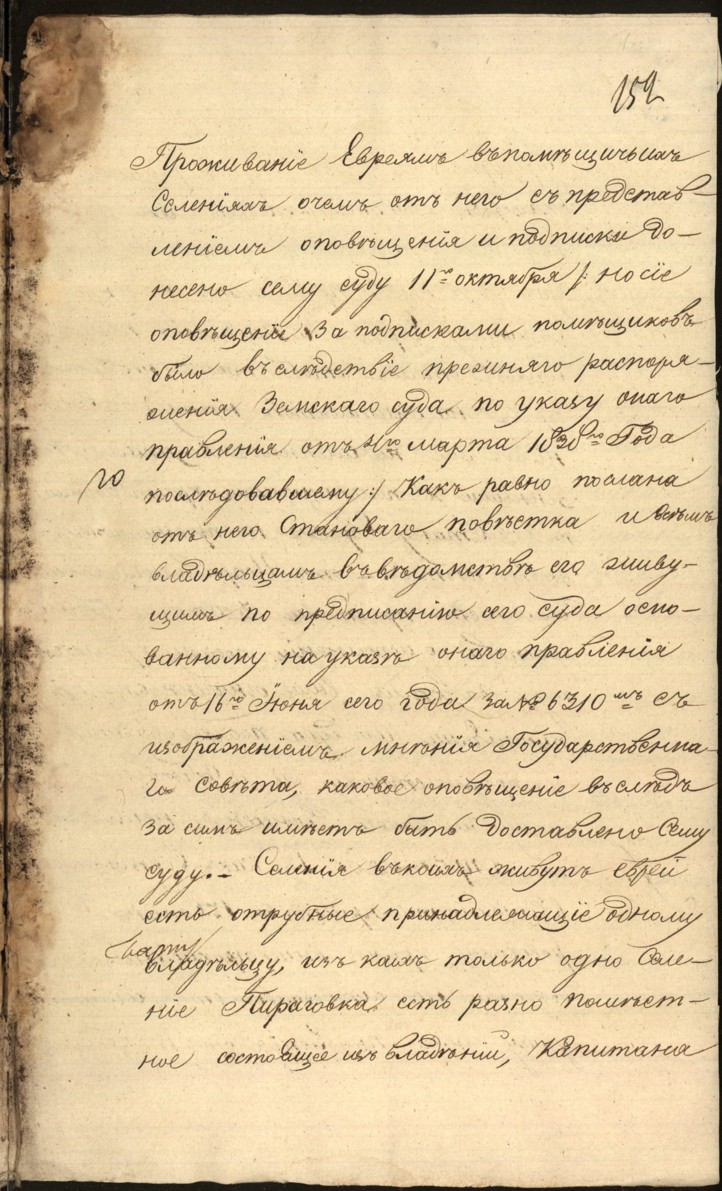 152
Проживаніе Евреямъ въ помѣщичьихъ
Селеніяхъ о чемъ отъ него съ представ-
леніемъ оповѣщенія и подписки до-
несено сему суду 11го октября /: но сіе
оповѣщеніе за подписками помѣщиковъ
было въ слѣдствіе прежняго распоря-
женія Земскаго суда по указу онаго
правленія отъ марта 1838го Года
го
послѣдовавшему :/ Какъ равно послана
отъ него Становаго повѣстка и всѣмъ
владѣльцамъ въ вѣдомствѣ его живу-
щимъ по предписанію сего суда осно-
ванному на указѣ онаго правленія
отъ 16го Іюня сего года за № 6310мъ съ
изображеніемъ мнѣнія Государственна-
го совѣта, каковое оповѣщеніе въ слѣдъ
за симъ имѣетъ быть доставлено Сему
суду. – Селенія въ коихъ живутъ еврей
есть отрубные принадлежащіе одному
владѣльцу, изъ каихъ только одно Селе-
ніе Пироговка есть разно помѣст-
ное состоящее изъ владѣній, Капитана